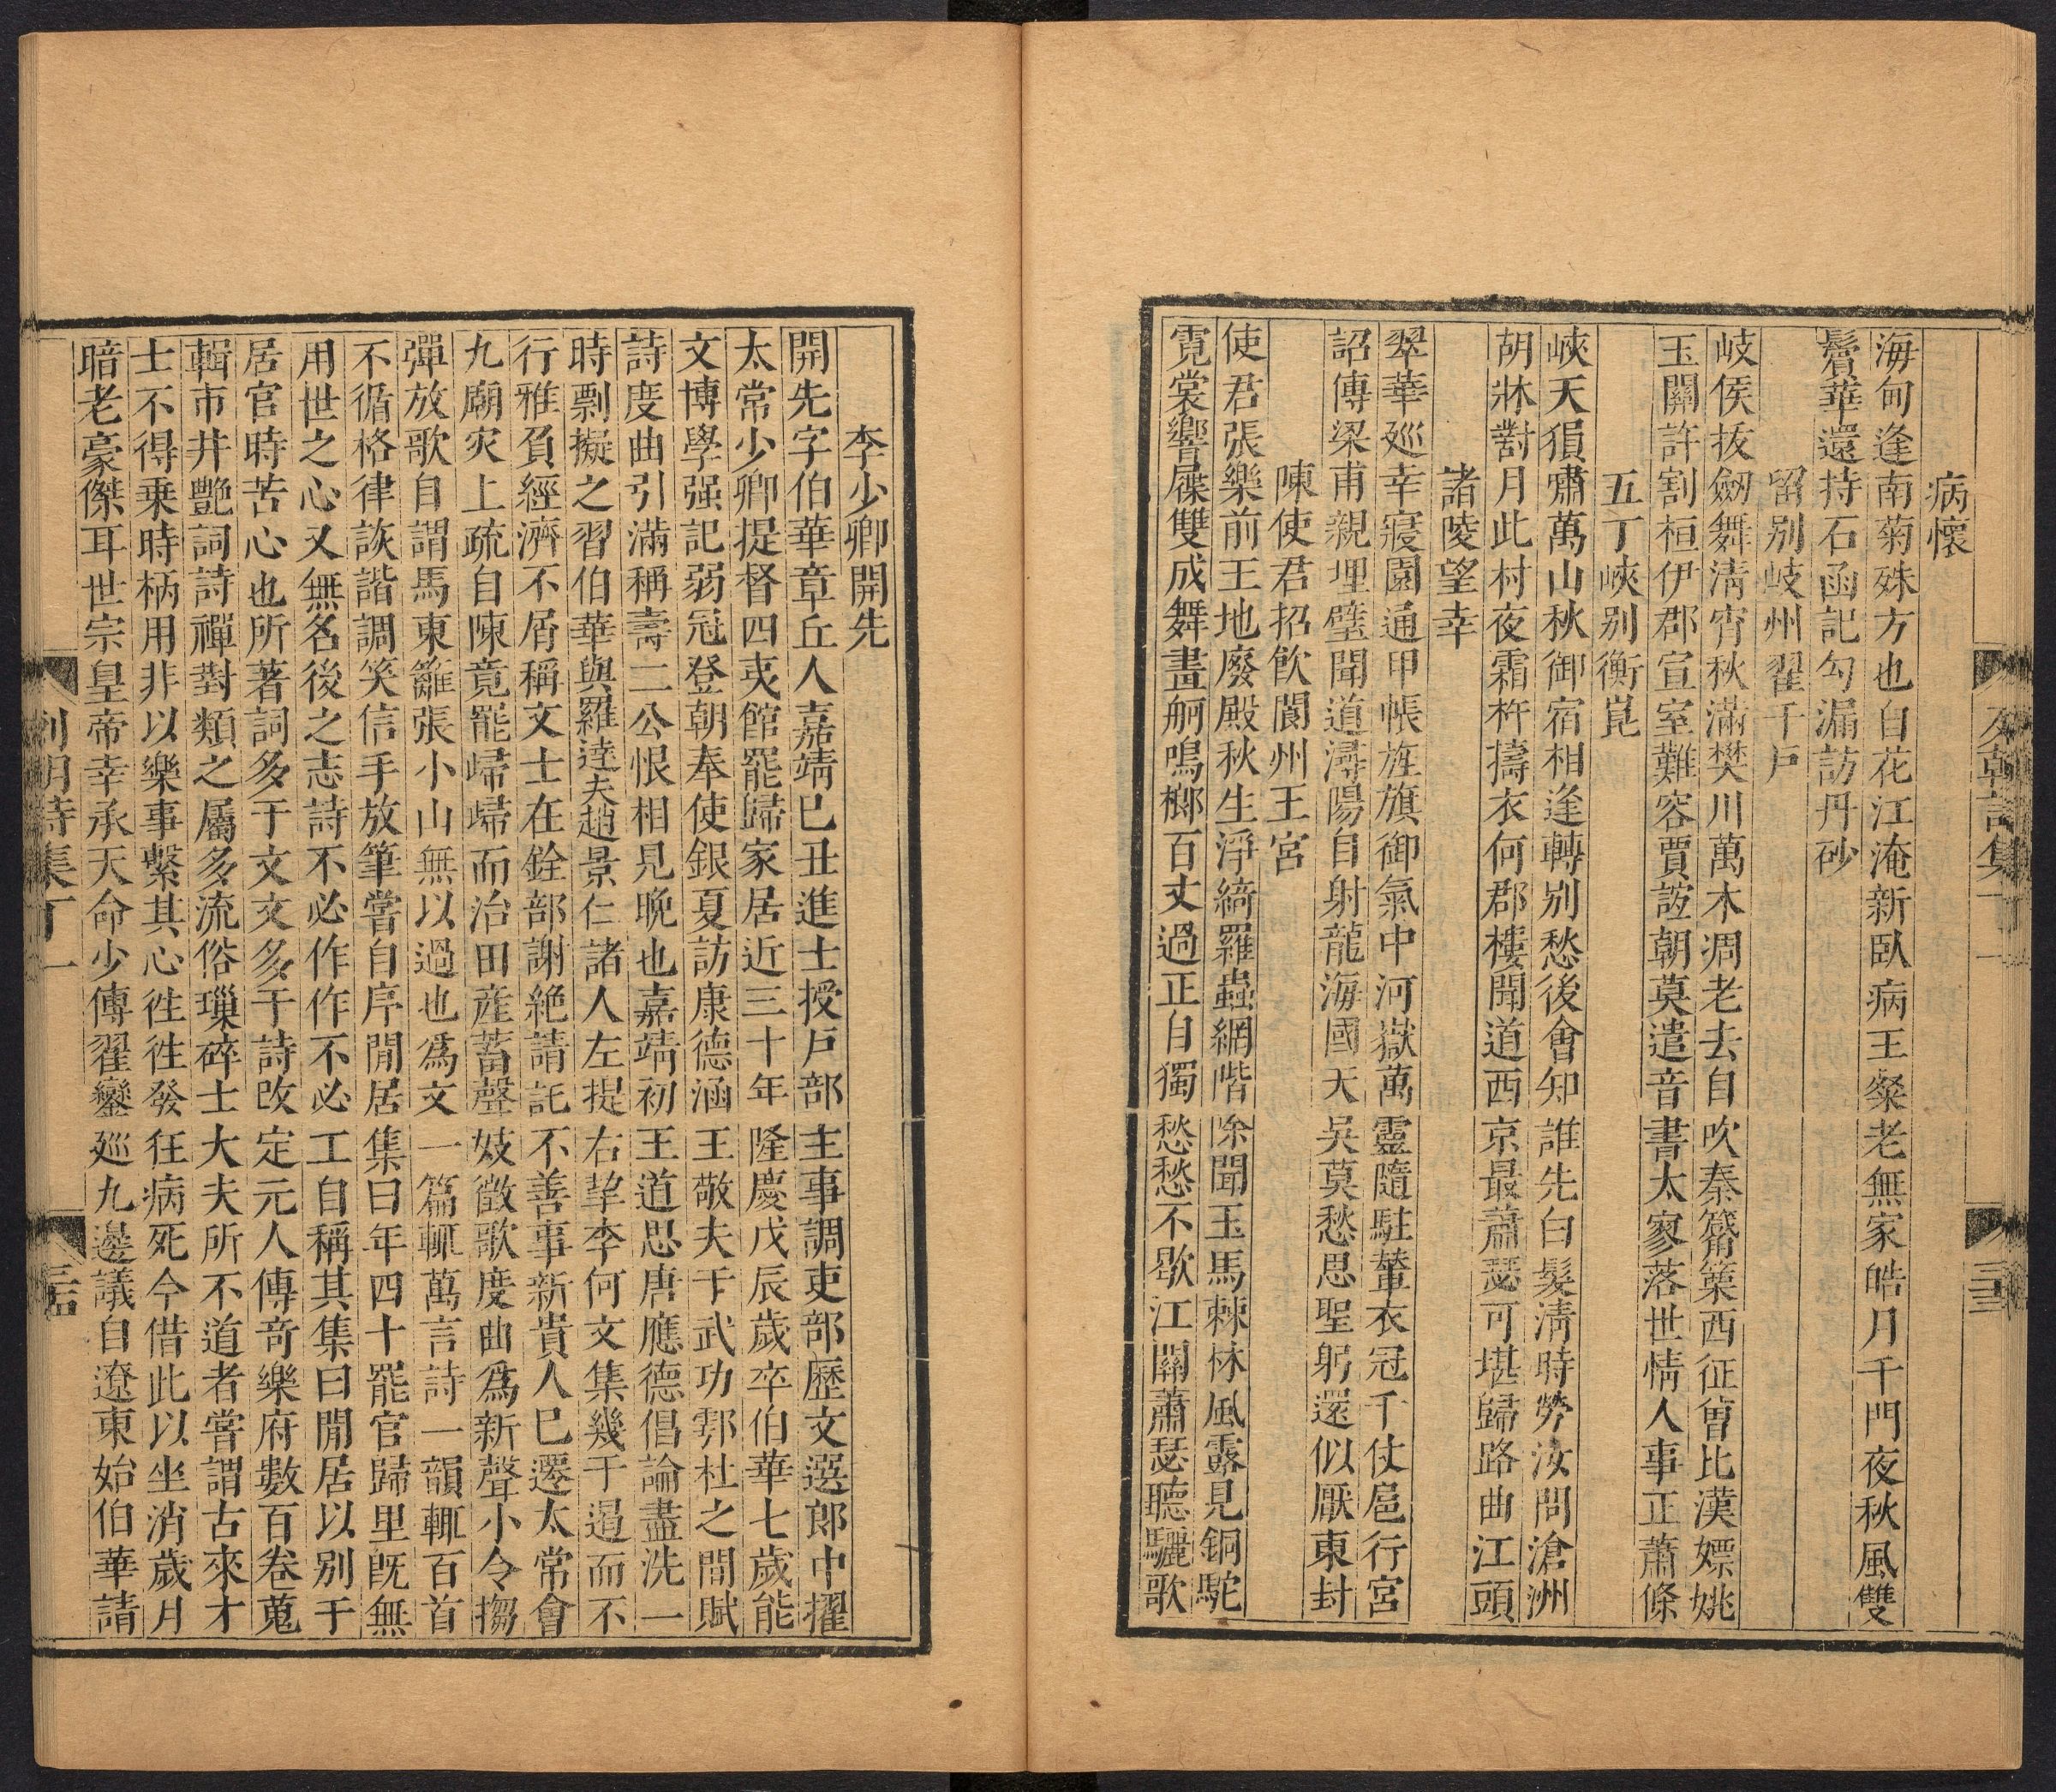 病懷
海甸逢南菊殊方也白花江淹新臥病王粲老無家皓月千門夜秋風雙
鬢華還持石函記勾漏訪丹砂
留別岐州翟千戶
岐侯拔劒舞清宵秋滿樊川萬木凋老去自吹秦觱篥西征曾比漢嫖姚
玉關許割桓伊郡宣室難容賈誼朝莫遣音書太寥落世情人事正蕭條
五丁峽別衡嵬
峽天猿嘯萬山秋御宿相逢轉別愁後會知誰先白髮清時勞汝問滄洲
胡牀對月此村夜霜杵擣衣何郡樓聞道西京最蕭瑟可堪歸路曲江頭
諸陵望幸
翠華廵幸寢園通甲帳旌旗御氣中河嶽萬靈隨駐輦衣冠千仗扈行宮
詔傳梁甫親埋璧聞道潯陽自射龍海國天吳莫愁思聖躬還似厭東封
陳使君招飲閬州王宮
使君張樂前王地廢殿秋生淨綺羅蟲網階除聞玉馬棘林風露見銅駝
霓裳響屧雙成舞畫舸鳴榔百丈過正自獨愁愁不歇江關蕭瑟聽驪歌
李少卿開先
開先字伯華章丘人嘉靖巳丑進士授戶部主事調吏部歷文選郎中擢
太常少卿提督四夷館罷歸家居近三十年隆慶戊辰歲卒伯華七歲能
文博學强記弱冠登朝奉使銀夏訪康德涵王敬夫于武功鄠杜之間賦
詩度曲引滿稱壽二公恨相見晚也嘉靖初王道思唐應德倡論盡洗一
時剽擬之習伯華與羅逹夫趙景仁諸人左提右挈李何文集幾于遏而不
行雅負經濟不屑稱文士在銓部謝絶請託不善事新貴人巳遷太常會
九廟灾上疏自陳竟罷歸歸而治田産蓄聲妓徵歌度曲爲新聲小令搊
彈放歌自謂馬東籬張小山無以過也爲文一篇輒萬言詩一韻輒百首
不循格律詼諧調笑信手放筆嘗自序閒居集曰年四十罷官歸里旣無
用世之心又無名後之志詩不必作作不必工自稱其集曰閒居以別于
居官時苦心也所著詞多于文文多于詩改定元人傳奇樂府數百卷蒐
輯市井艷詞詩禪對類之屬多流俗瑣碎士大夫所不道者嘗謂古來才
士不得乘時柄用非以樂事繫其心徃徃發狂病死今借此以坐消歲月
暗老豪傑耳世宗皇帝幸承天命少傅翟鑾廵九邊議自遼東始伯華請